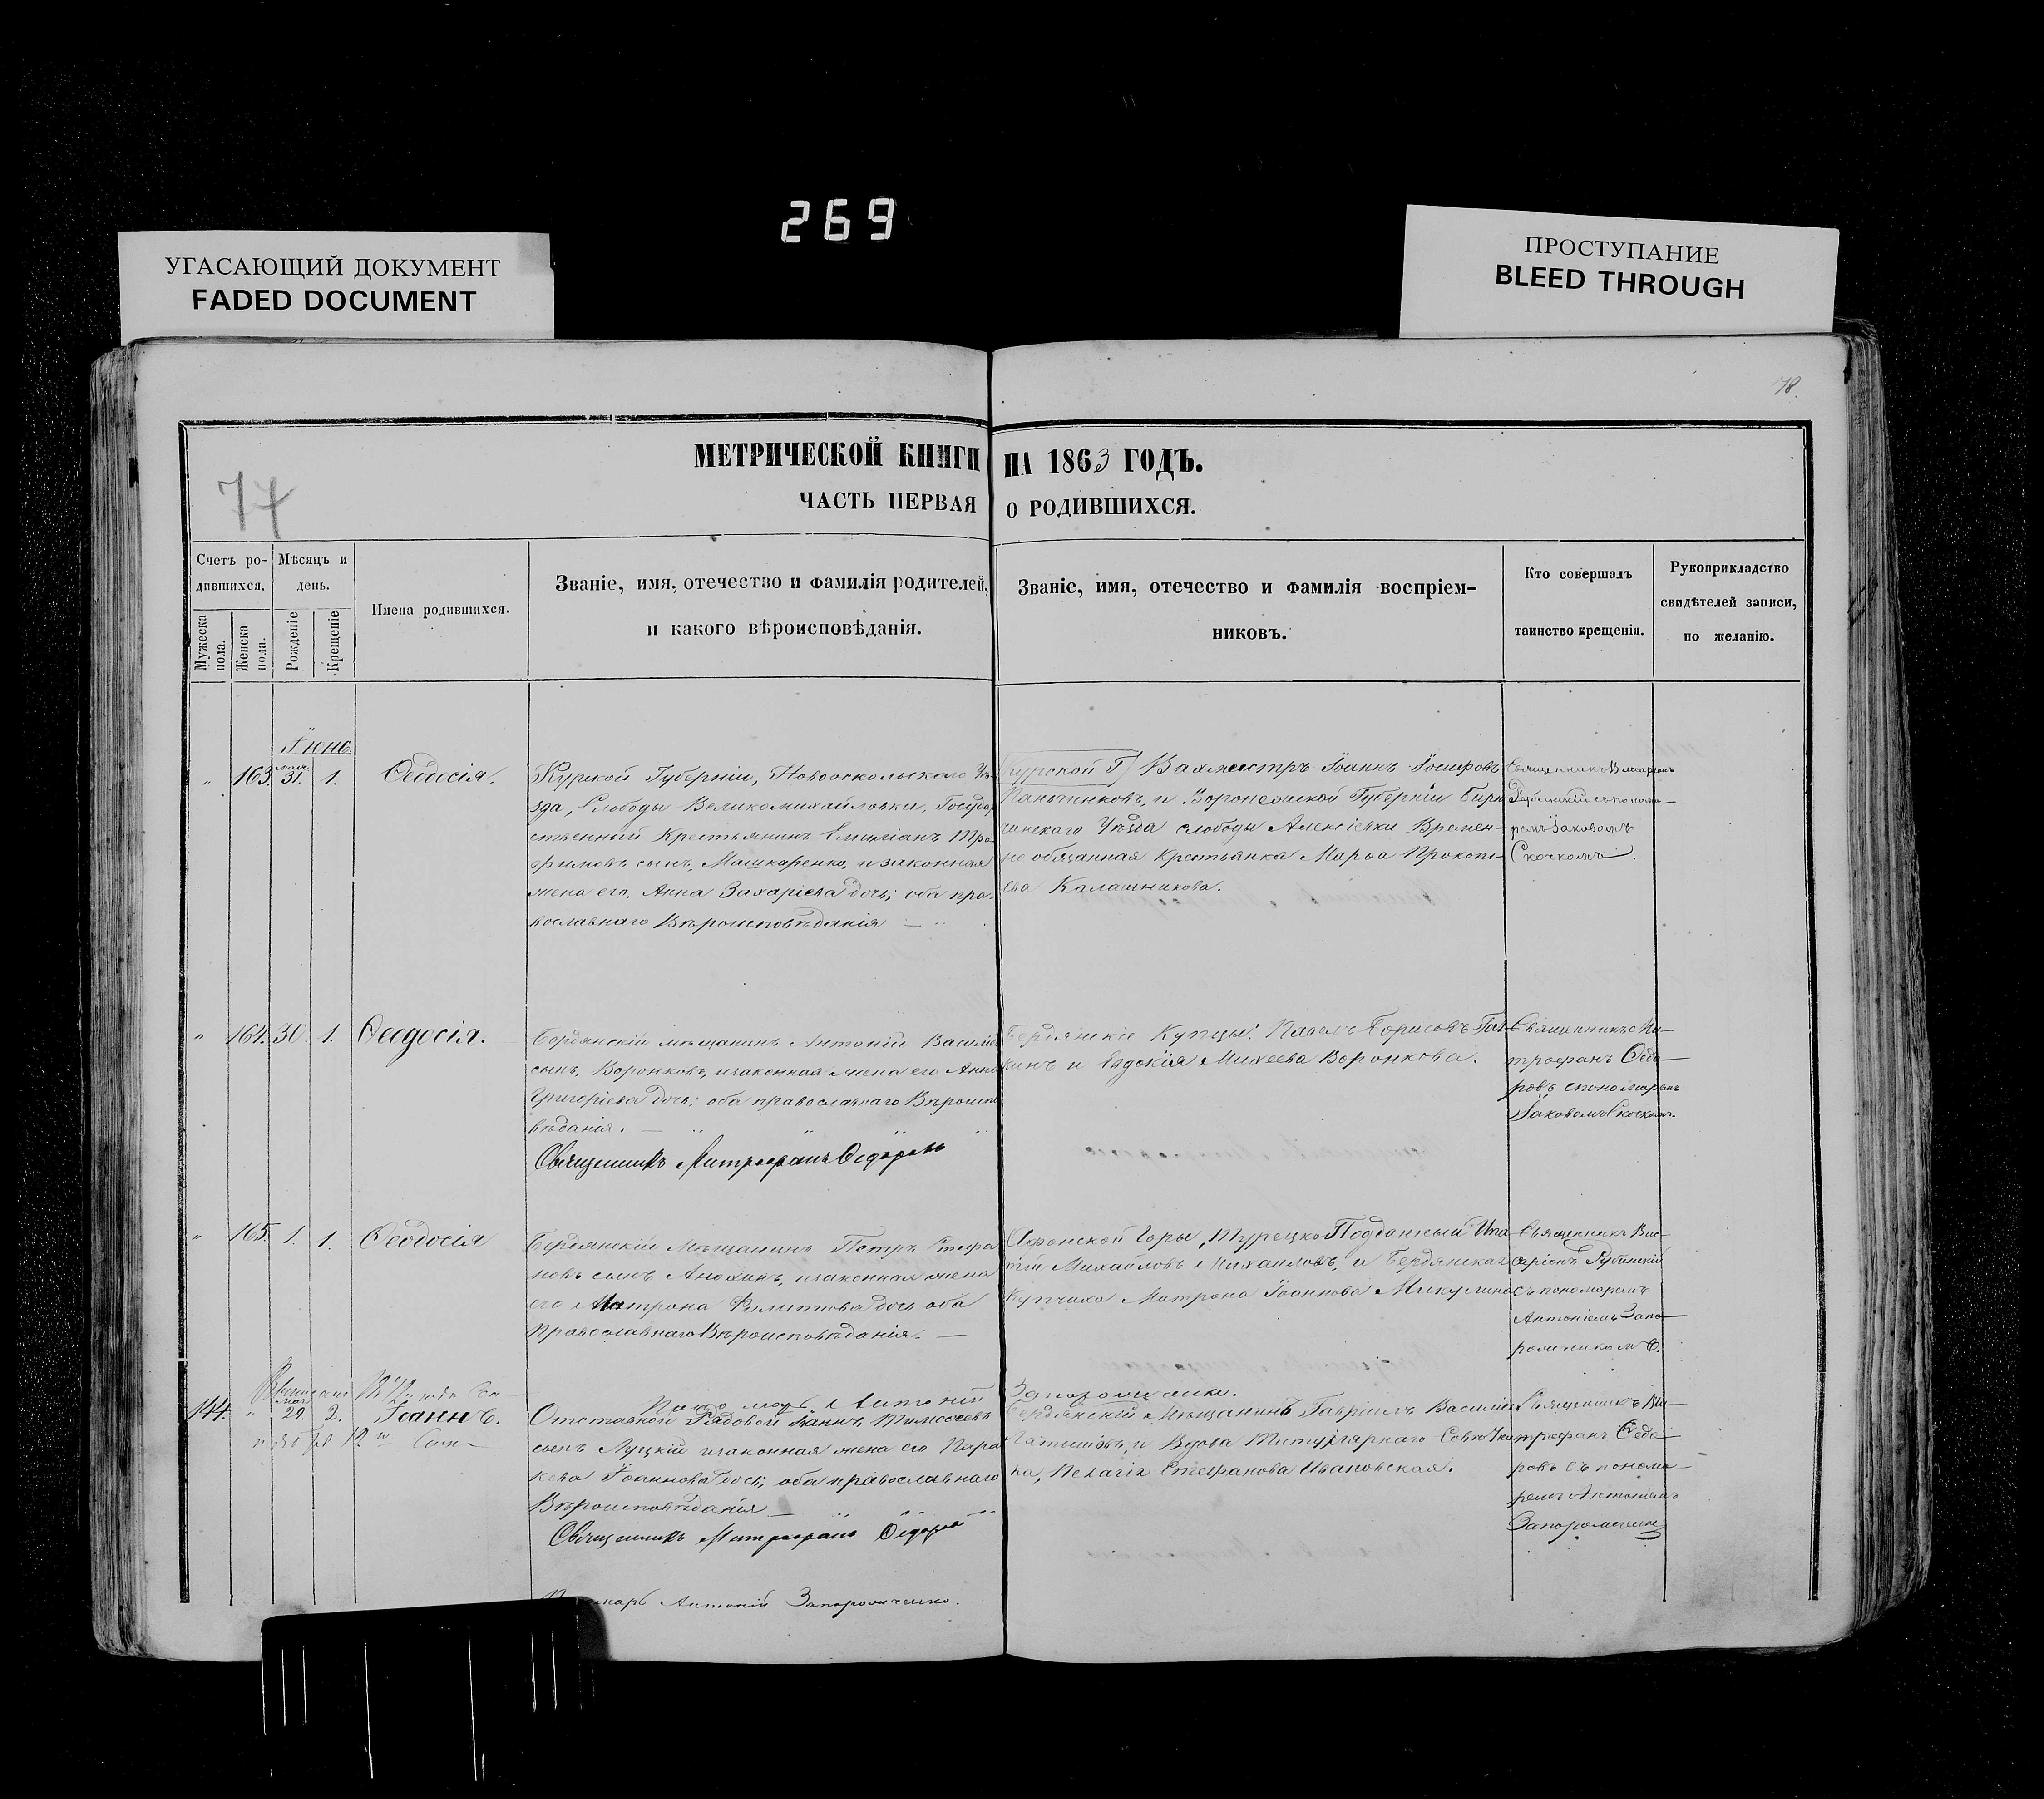 269
УГАСАЮЩИЙ ДОКУМЕНТ
FADED DOCUMENT
ПРОСТУПАНИЕ
BLEED THROUGH
78.
77
МЕТРИЧЕСКОЙ КНИГИ НА 1863 ГОДЪ.
ЧАСТЬ ПЕРВАЯ О РОДИВШИХСЯ.
Счетъ ро-
дившихся.
Мужеска пола.
Женска пола.
Мѣсяцъ и
день.
Рожденіе
Крещеніе
Имена родившихся.
Званіе, имя, отечество и фамилія родителей,
и какого вѣроисповѣданія.
Званіе, имя, отечество и фамилія воспріем-
никовъ.
Кто совершалъ
таинство крещенія.
Рукоприкладство
свидѣтелей записи,
по желанію.
Іюнь.
" 163. мая 31. 1. Ѳеодосія.
Курской Губерніи, Новооскольскаго Уѣ-
зда, Слободы Великомихайловки, Государ
ственный Крестьянинъ Емиліанъ Тро
фимовъ сынъ, Машкаренко, и законная
жена его, Анна Захаріева дочь; оба пра-
вославнаго Вѣроисповѣданія
Курской Г Вахмистръ Іоаннъ Іосифовъ
Паньчинковъ, и Воронежской Губерніи Бирю
чинскаго Уѣзда слободы Алексіевки Времен-
но обязанная крестьянка Марѳа Прокопі-
ева Калашникова.
Священникъ Виссаріонъ
Рубинскій съ понома-
ремъ Іаковомъ
Скочкомъ.
" 164. 30. 1. Ѳеодосія.
Бердянскій мѣщанинъ Антоній Василіевъ
сынъ, Воронковъ, и законная жена его Анна
Григоріева дочь; оба православнаго Вѣроиспо
вѣданія.
Священникъ Митрофанъ Ѳедоровъ
Бердянскіе Купцы: Павелъ Борисовъ
и Евдокія Михеева Воронкова.
Священникъ Ми-
трофанъ Ѳедо-
ровъ с пономаремъ
Іаковомъ Скочкомъ.
" 165. 1. 1. Ѳеодосія
Бердянскій Мѣщанинъ Петръ Стефа
новъ сынъ Анохинъ, и законная жена
его Матрона Филиппова дочь оба
Православнаго Вѣроисповѣданія.
Афонской Горы, Турецко Подданный Игна
тій Михайловъ Михаиловъ, и Бердянская
Купчиха Матрона Іоаннова Микулина
Священникъ Вис-
саріонъ Рубинскій
съ пономаремъ
Антоніемъ Запо-
рожченкомъ.
Пономарь Антоній
Запорожченко.
144. " мая 29. 2. Іоаннъ.
Отставной Рядовой Іаннъ Тимоѳеевъ
сынъ Луцкій и законная жена его Пара
кева Іоаннова дочь; оба православнаго
Вѣроисповѣданія
Священникъ Митрофанъ Ѳедоровъ
Бердянскій Мѣщанинъ Гавріилъ Василіевъ
и Вдова Титулярнаго Совѣтни
ка, Пелагія Стефанова Ивановская.
Священникъ Ми-
трофанъ Ѳедо-
ровъ съ понома-
ремъ Антоніемъ
Запорожченкомъ
Пономарь Антоній Запорожченко.